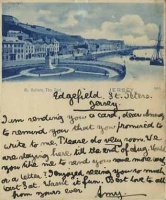 St. Helier, The
JERSEY
Edgefield St. Peters.
Jersey
I am sending you a card, dear Amy
to remind you that you promised to
write to me. Please do very soon. We
are staying here till the end of Aug. Would
you like me to send you some more cards
or a letter? I enjoyed seeing you so much
last Sat. Wasn't it fun. Best love to all
from yours ever
Amy